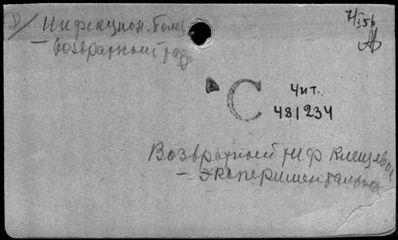 D/ Инфекцион. болез
7/I 55
– возвратный тиф
C
Чит.
481234
Возвратный тиф клещевой
– экспериментальный